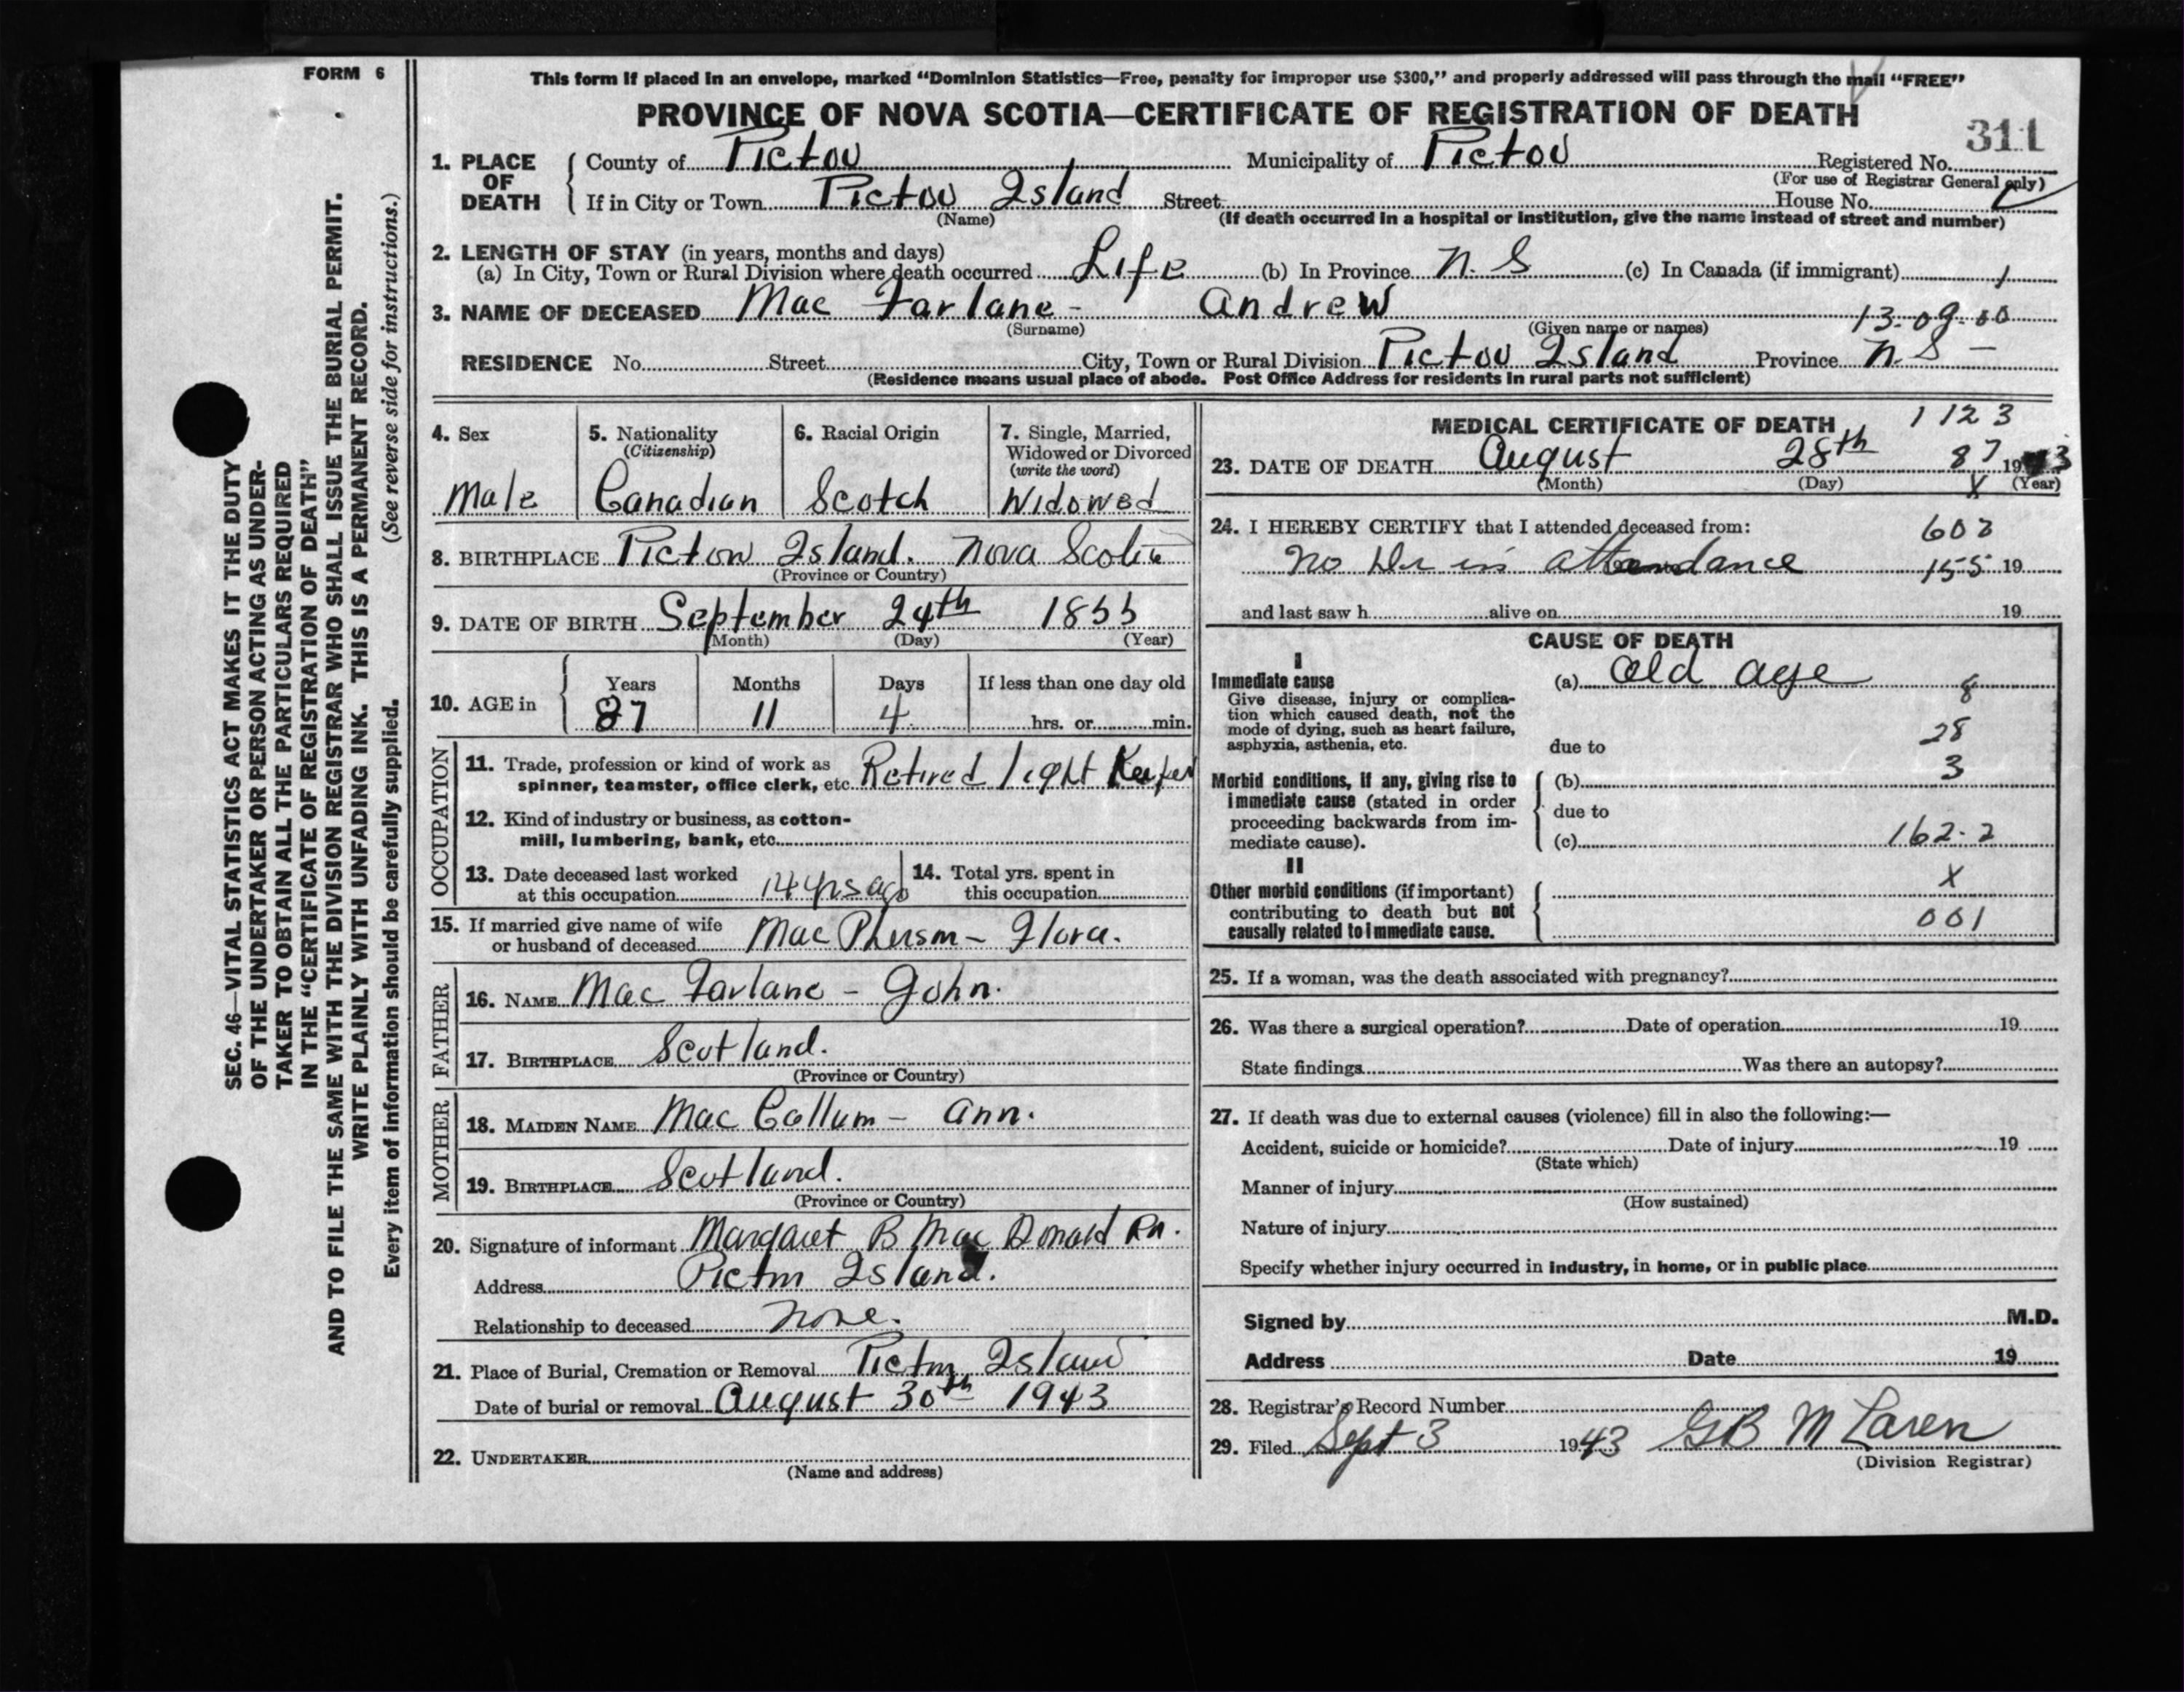 FORM 6
This form if placed in an envelope, marked “Dominion Statistics—Free, penalty for improper use $300,” and properly addressed will pass through the mail “FREE”
PROVINCE OF NOVA SCOTIA—CERTIFICATE OF REGISTRATION OF DEATH
311
1. PLACE OF DEATH
County of Pictou Municipality of Pictou Registered No.
(For use of Registrar General only)
If in City or Town Pictou Island Street House No.
(Name) (If death occurred in a hospital or institution, give the name instead of street and number)
2. LENGTH OF STAY (in years, months and days)
(a) In City, Town or Rural Division where death occurred Life (b) In Province N. S (c) In Canada (if immigrant)
3. NAME OF DECEASED Mac Farlane - Andrew 13-09-00
(Surname) (Given name or names)
RESIDENCE No. Street City, Town or Rural Division Pictou Island Province N. S -
(Residence means usual place of abode. Post Office Address for residents in rural parts not sufficient)
4. Sex
Male
5. Nationality
(Citizenship)
Canadian
6. Racial Origin
Scotch
7. Single, Married,
Widowed or Divorced
(write the word)
Widowed
8. BIRTHPLACE Pictou Island. Nova Scotia
(Province or Country)
9. DATE OF BIRTH September 24th 1855
(Month) (Day) (Year)
10. AGE in
Years Months Days If less than one day old
87 11 4 hrs. or min.
OCCUPATION
11. Trade, profession or kind of work as
spinner, teamster, office clerk, etc. Retired light Keeper
12. Kind of industry or business, as cotton-
mill, lumbering, bank, etc.
13. Date deceased last worked
at this occupation 14 yrs ago
14. Total yrs. spent in
this occupation
15. If married give name of wife
or husband of deceased Mac Pherson - Flora.
FATHER
16. NAME Mac Farlane - John.
17. BIRTHPLACE Scotland.
(Province or Country)
MOTHER
18. MAIDEN NAME Mac Callum - Ann.
19. BIRTHPLACE Scotland.
(Province or Country)
20. Signature of informant Margaret B Mac Donald Rn.
Address Pictou Island.
Relationship to deceased None.
21. Place of Burial, Cremation or Removal Pictou Island
Date of burial or removal August 30th 1943
22. UNDERTAKER
(Name and address)
MEDICAL CERTIFICATE OF DEATH 1123
23. DATE OF DEATH August 28th 87 1943
(Month) (Day) X (Year)
24. I HEREBY CERTIFY that I attended deceased from:
No Dr in attendance 155 19
and last saw h alive on 19
CAUSE OF DEATH
I
Immediate cause
Give disease, injury or complica-
tion which caused death, not the
mode of dying, such as heart failure,
asphyxia, asthenia, etc.
(a) Old age
28
due to
3
Morbid conditions, if any, giving rise to
immediate cause (stated in order
proceeding backwards from im-
mediate cause).
(b)
due to
(c) 162.2
II
X
Other morbid conditions (if important)
contributing to death but not
causally related to immediate cause.
001
25. If a woman, was the death associated with pregnancy?
26. Was there a surgical operation? Date of operation 19
State findings Was there an autopsy?
27. If death was due to external causes (violence) fill in also the following:—
Accident, suicide or homicide? Date of injury 19
(State which)
Manner of injury
(How sustained)
Nature of injury
Specify whether injury occurred in industry, in home, or in public place
Signed by M.D.
Address Date 19
28. Registrar's Record Number
29. Filed Sept 3 1943 GB McLaren
(Division Registrar)
SEC. 46—VITAL STATISTICS ACT MAKES IT THE DUTY
OF THE UNDERTAKER OR PERSON ACTING AS UNDER-
TAKER TO OBTAIN ALL THE PARTICULARS REQUIRED
IN THE “CERTIFICATE OF REGISTRATION OF DEATH”
AND TO FILE THE SAME WITH THE DIVISION REGISTRAR WHO SHALL ISSUE THE BURIAL PERMIT.
WRITE PLAINLY WITH UNFADING INK. THIS IS A PERMANENT RECORD.
Every item of information should be carefully supplied. (See reverse side for instructions.)